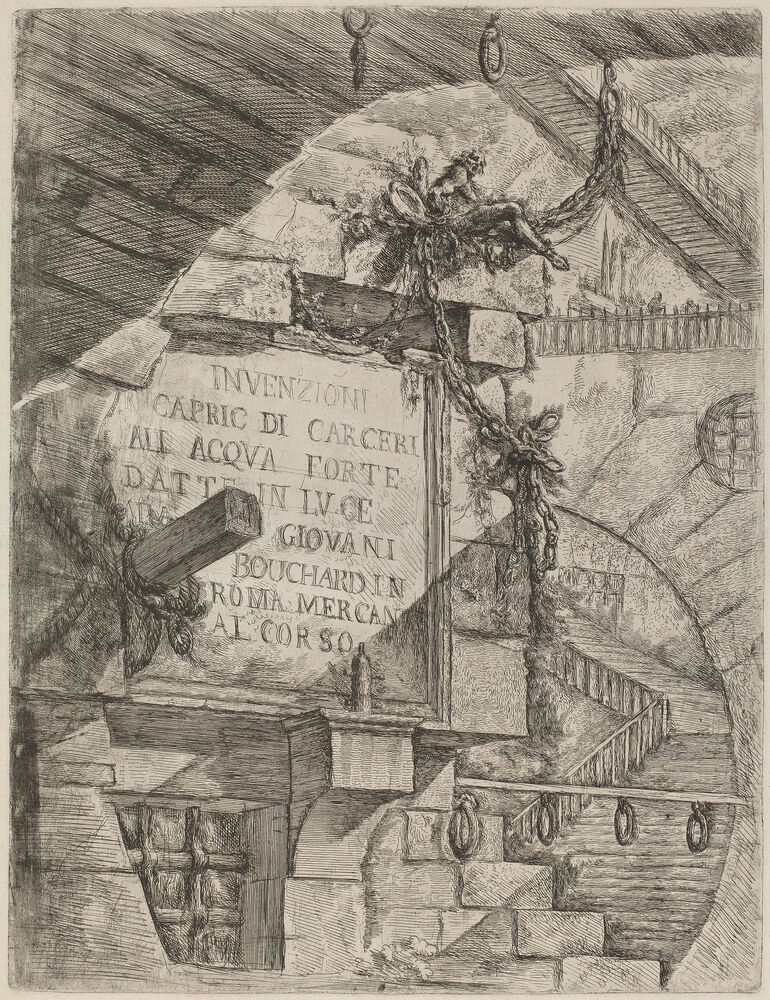 INVENZIONI
CAPRIC DI CARCERI
ALL ACQVA FORTE
DATTE IN LUCE
GIOVANI
BOUCHARD IN
ROMA MERCAN
AL CORSO